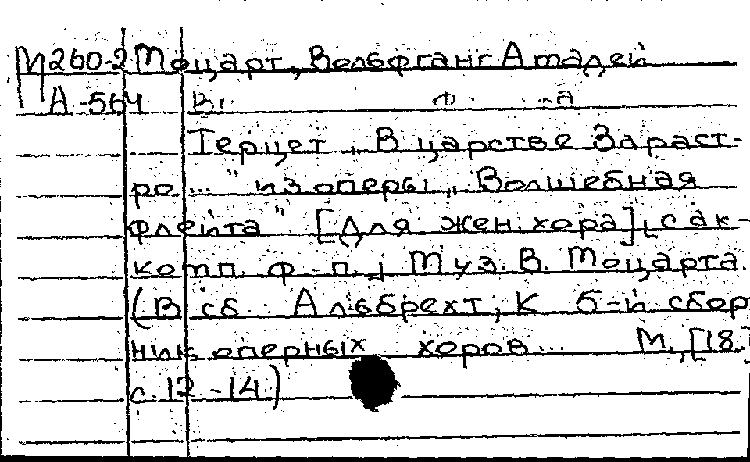 М260-2 Моцарт, Вольфганг Амадей
А-564
Терцет „В царстве Зараст-
ро..." из оперы „Волшебная
флейта" [Для жен. хора], с ак-
комп. ф-п.; Муз. В. Моцарта.
(В сб. Альбрехт, К 6-й сбор
ник оперных хоров... М., [18.
с. 12-14)